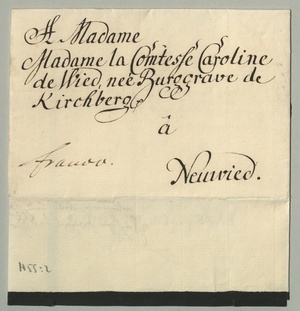 A Madame
Madame la Comtesse Caroline
de Wied, neé Burggrave de
Kirchberg
à
franco.
Neuwied.